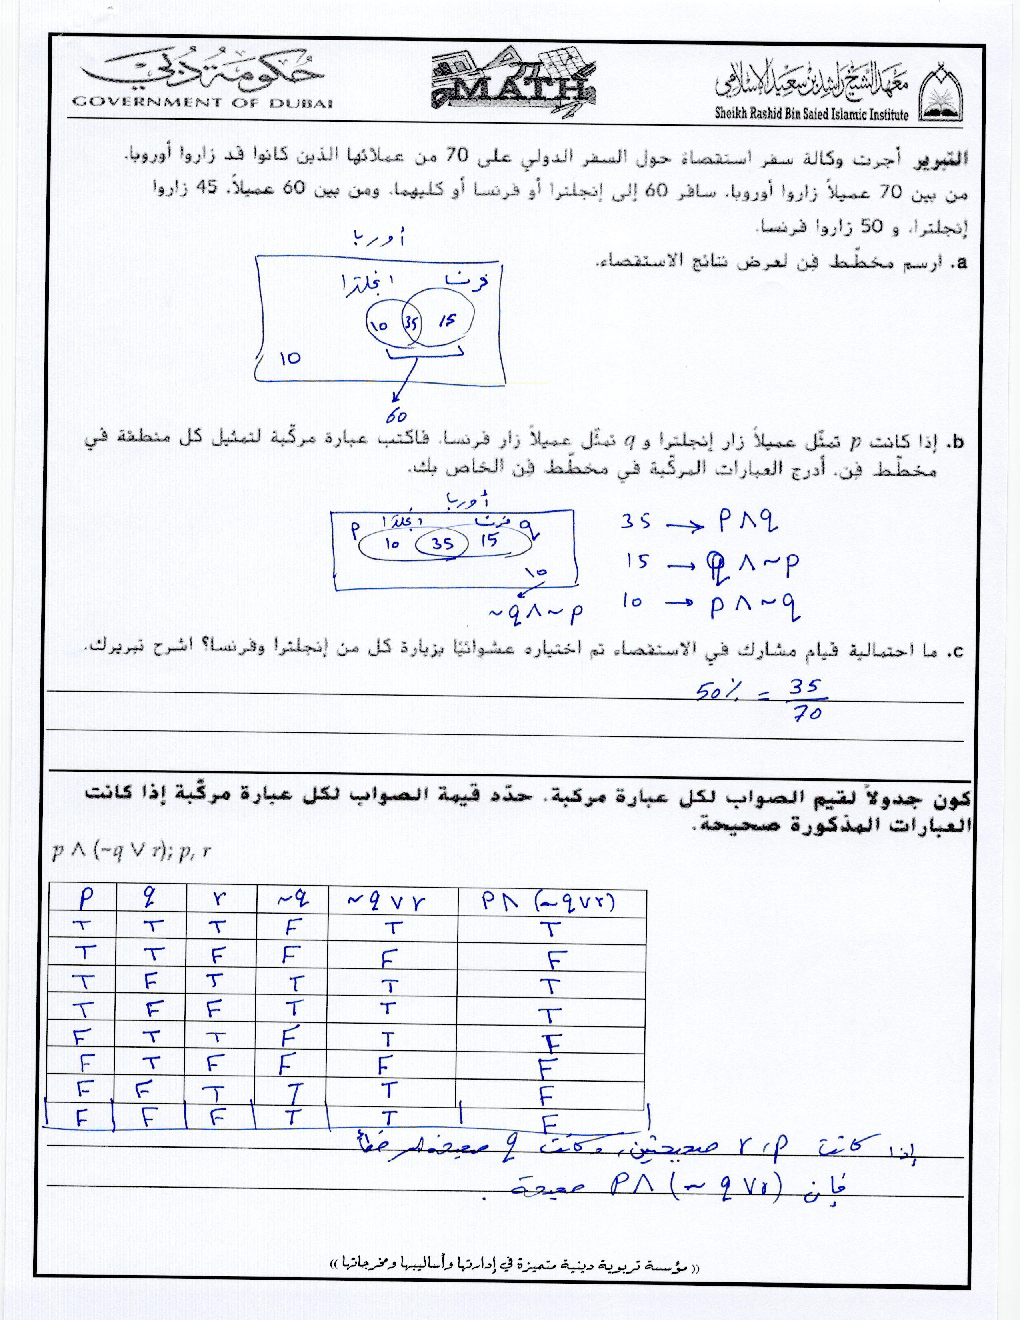 حكومة دبي
GOVERNMENT OF DUBAI
MATH
معهد الشيخ راشد بن سعيد الإسلامي
Sheikh Rashid Bin Saied Islamic Institute
التبرير أجرت وكالة سفر استقصاءً حول السفر الدولي على 70 من عملائها الذين كانوا قد زاروا أوروبا.
من بين 70 عميلاً زاروا أوروبا، سافر 60 إلى إنجلترا أو فرنسا أو كليهما، ومن بين 60 عميلاً، 45 زاروا
إنجلترا، و 50 زاروا فرنسا.
a. ارسم مخطّط فِن لعرض نتائج الاستقصاء.
أوربا
فرنسا انجلترا
10 35 15
10
60
b. إذا كانت p تمثّل عميلاً زار إنجلترا و q تمثّل عميلاً زار فرنسا، فاكتب عبارة مركّبة لتمثيل كل منطقة في
مخطّط فِن. أدرج العبارات المركّبة في مخطّط فِن الخاص بك.
أوربا
p انجلترا فرنسا q
10 35 15
10
~q ∧ ~p
35 → p ∧ q
15 → q ∧ ~p
10 → p ∧ ~q
c. ما احتمالية قيام مشارك في الاستقصاء تم اختياره عشوائيًا بزيارة كل من إنجلترا وفرنسا؟ اشرح تبريرك.
50% = 35/70
كون جدولاً لقيم الصواب لكل عبارة مركبة. حدّد قيمة الصواب لكل عبارة مركّبة إذا كانت
العبارات المذكورة صحيحة.
p ∧ (~q ∨ r); p, r
p q r ~q ~q ∨ r P ∧ (~q ∨ r)
T T T F T T
T T F F F F
T F T T T T
T F F T T T
F T T F T F
F T F F F F
F F T T T F
F F F T T F
إذا كانت r ، p صحيحتين، وكانت q صحيحة أم خطأ
فإن P ∧ (~ q ∨ r) صحيحة .
(( مؤسسة تربوية دينية متميزة في إدارتها وأساليبها ومخرجاتها ))